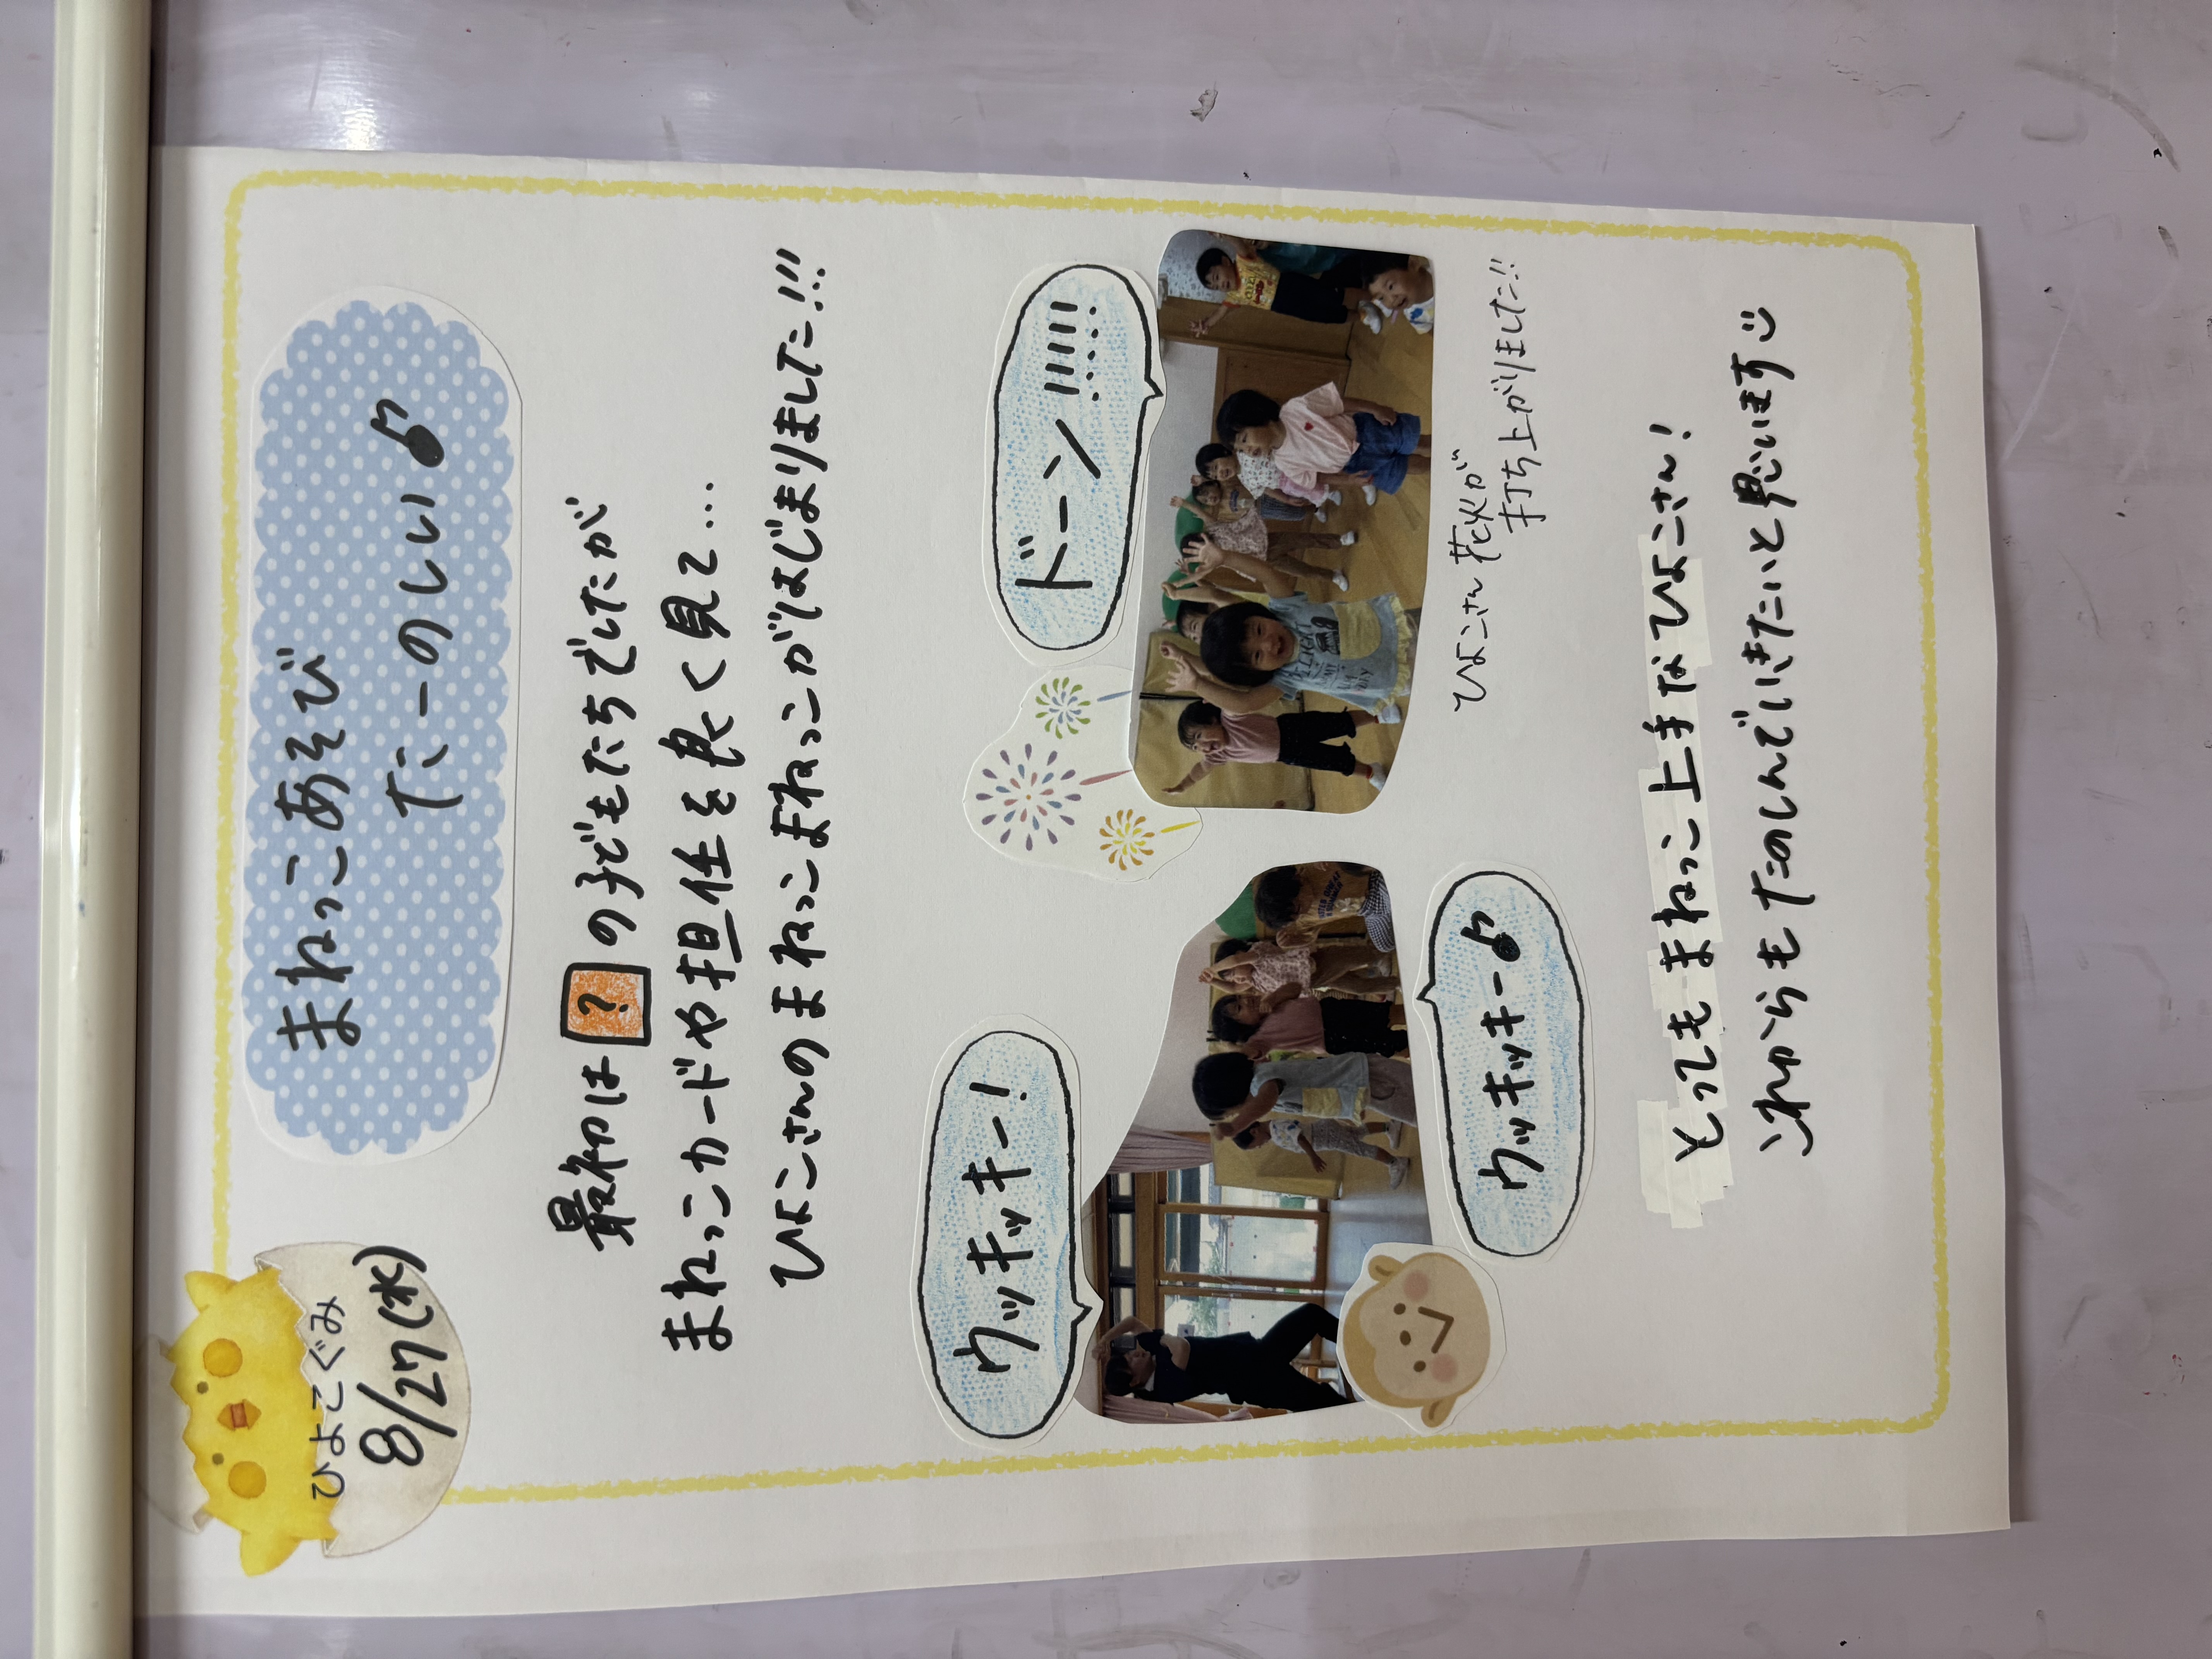 ひよこぐみ
8/27(水)
まねっこあそび
たーのしい♪
最初は?の子どもたちでしたが
まねっこカードや担任を良く見て…
ひよこさんのまねっこまねっこがはじまりました!!!
ウッキッキー!
ドーン!!!!!
ウッキッキー♪
ひよこさん花火が
打ち上がりました!!
とってもまねっこ上手なひよこさん!
これからもたのしんでいきたいと思います